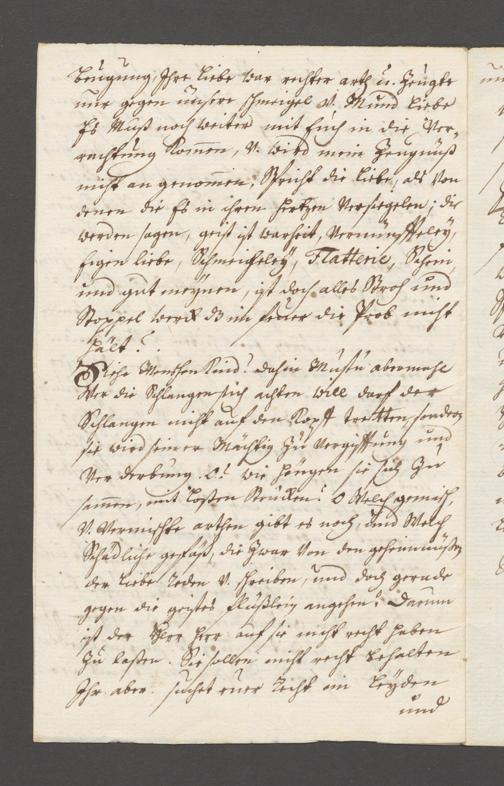 beugung, Ihre liebe war rechter arth u. zeugte
nur gegen unsere schmeigel V. Mund liebe
Es Muß noch weiter mit Euch in die Ver-
rechtung Kommen, V. wird mein Zeugnüß
nicht an genommen, Spricht die liebe, als von
denen die Es in ihren Hertzen Versiegelen; die
werden sagen, geist ist warheit, Vernünffteley,
Eigen liebe, Schmeicheley, Flatterie, Schein,
und gut meynen, ist doch alles Stroh und
Stoppel werck das im feuer die Prob nicht
hält!
Siehe Menschen Kind! dahin Mustu abermahl
Wer die Schlangen sich achten will darf der
Schlangen nicht auf den Kopff tretten sondern
sie wird seiner Mächtig zu Vergifftung und
Verderbung. O! wie hängen sie sich zu
sammen, mit losten Stricken! O Welch gemisch
V. Vermischte arthen gibt es noch, und Welch
Schädliche gefäß, die zwar von den geheimnüßen
der liebe reden V. schreiben, und doch gerade
gegen die geistes angehen! Darum
ist der Herr Herr auf sie nicht recht haben
zu laßen. Sie sollen nicht recht behalten
Ihr aber suchet euer recht im leyden
und